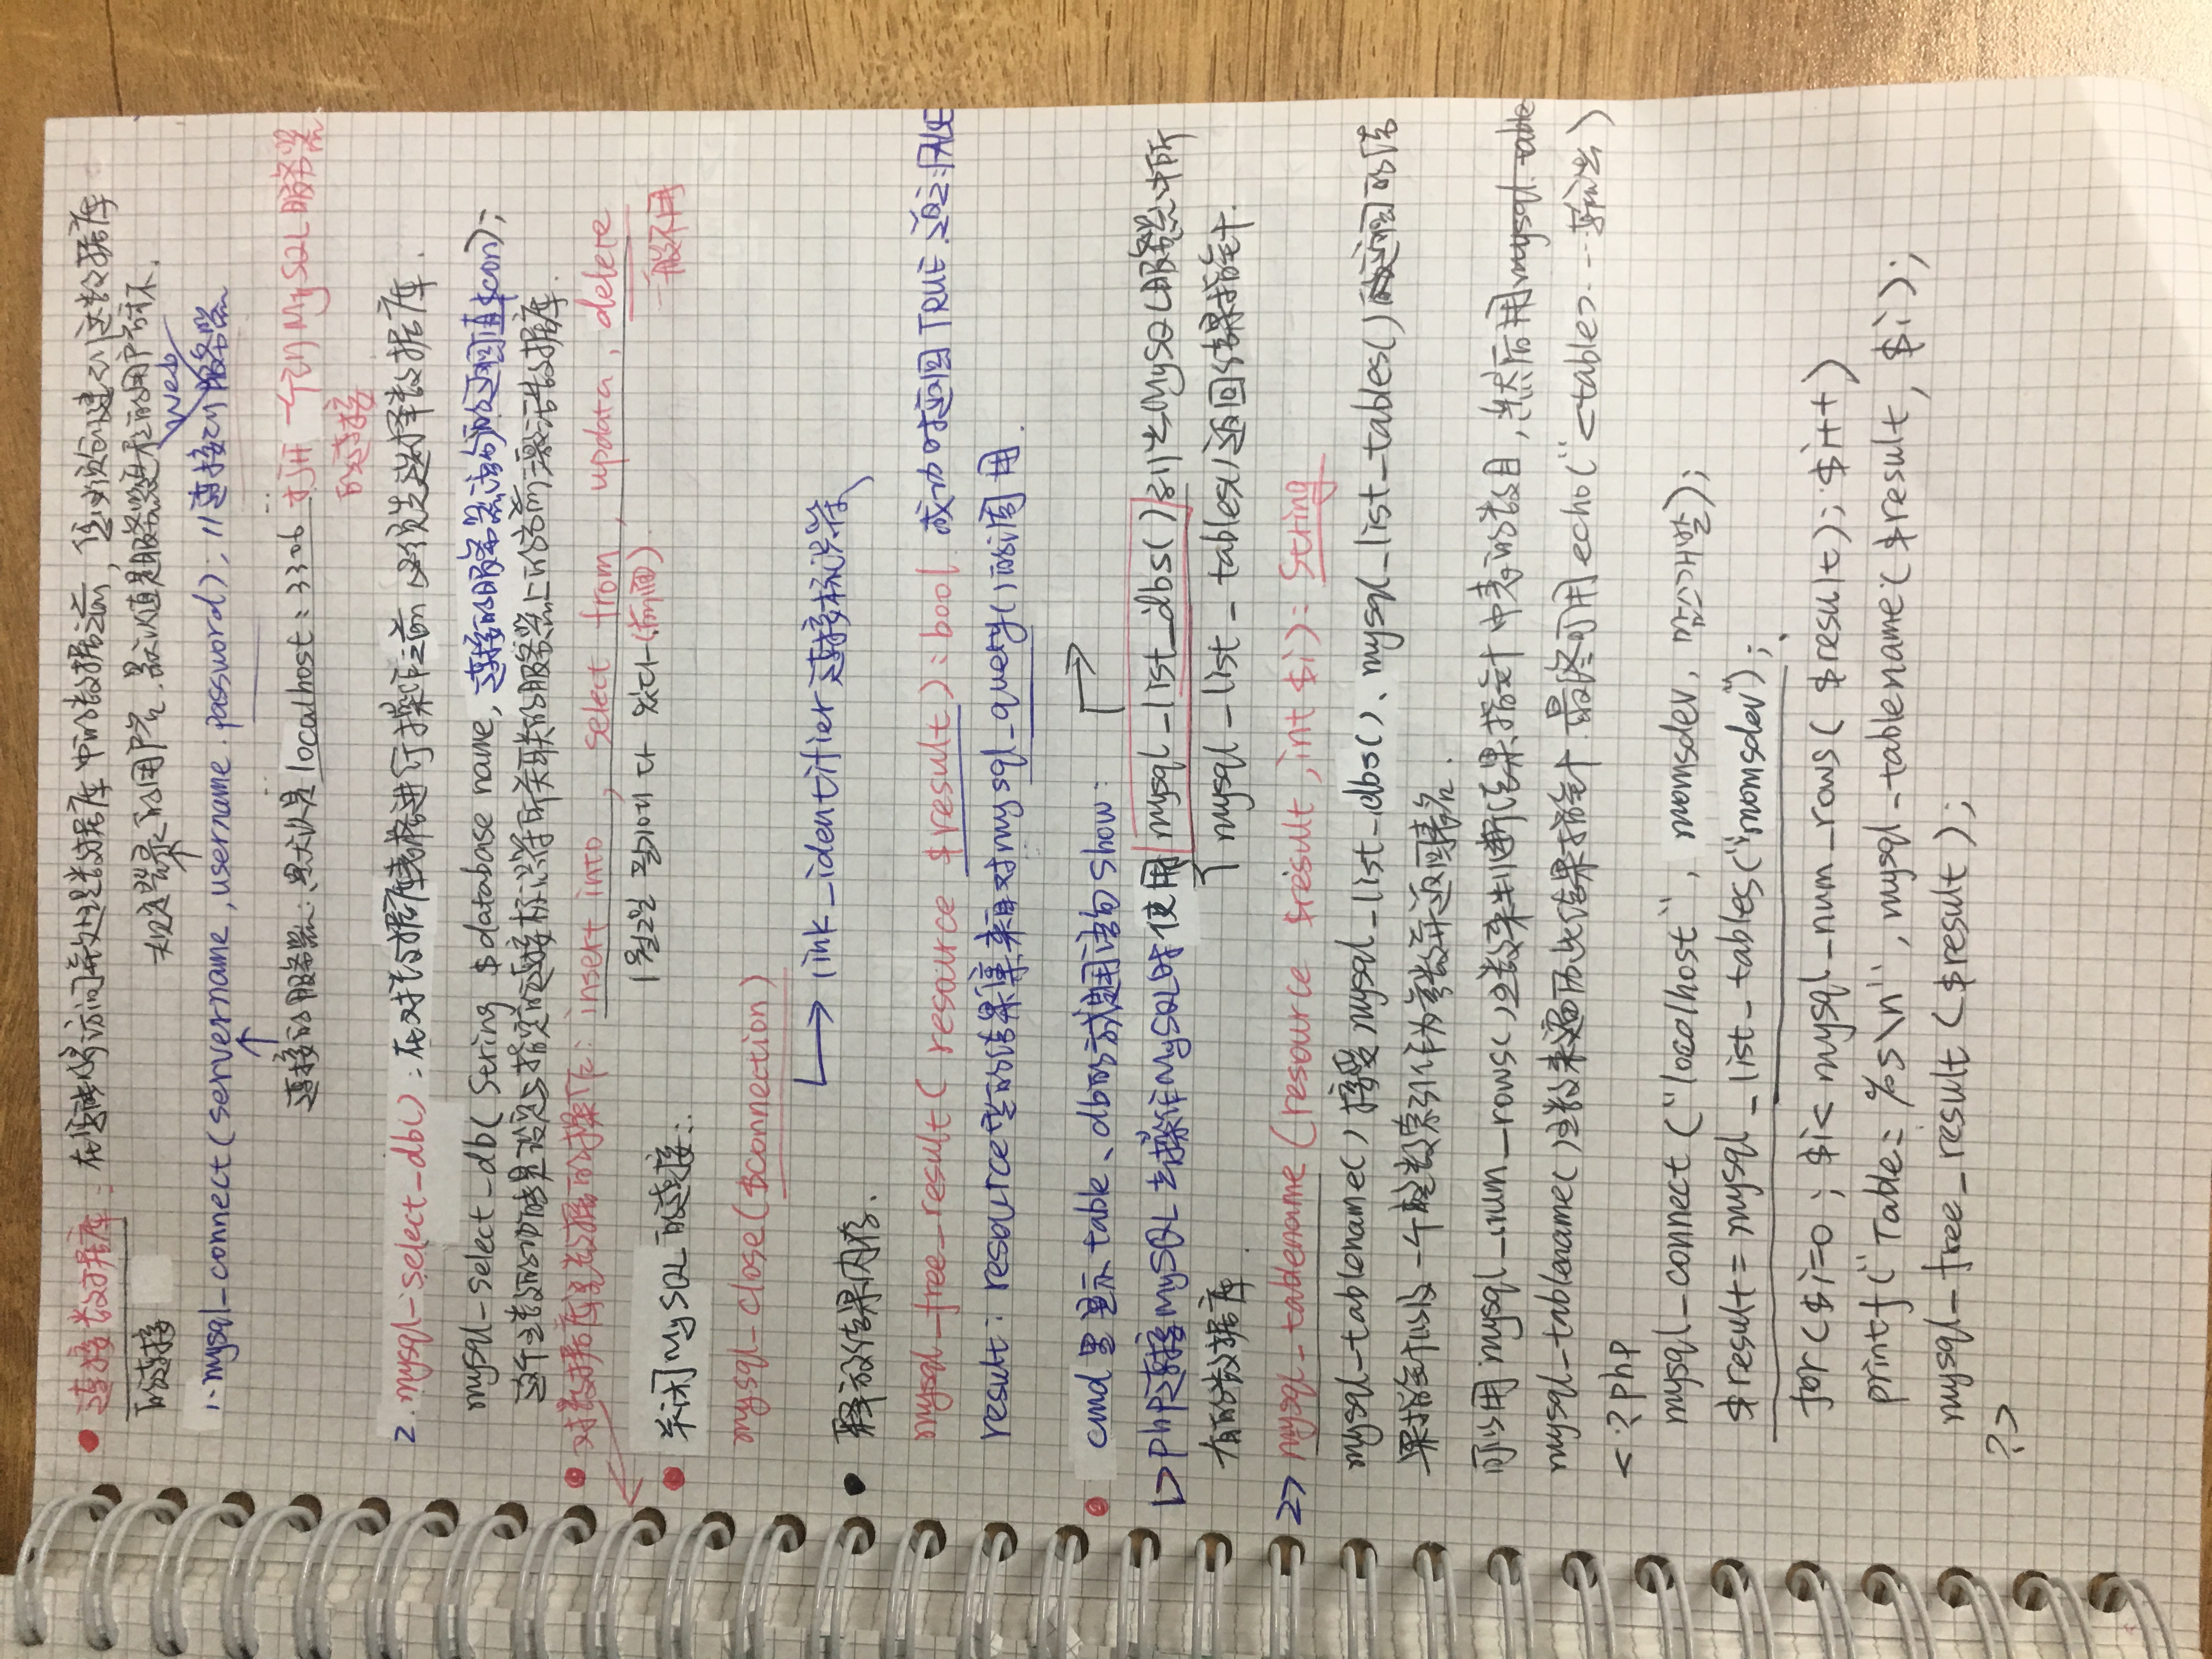 连接数据库: 在您能够访问并处理数据库中的数据之前, 您必须创建到达数据库
的连接
规定登录的用户名. 默认值是服务器进程的用户名称.
Web
1. mysql_connect(servername, username. password); //连接到服务器
连接的服务器: 默认是 localhost: 3306 打开一个到MySQL服务器
的连接
2. mysql_select_db(): 在对数据库表格进行操作之前 必须先选择数据库.
mysql_select_db( String $database name, 连接的服务器语句的返回值$con);
这个函数的功能是设定与指定的连接标识符所关联的服务器上的当前激活数据库.
对数据库里数据的操作: insert into, select from, updata, delete
1월2일 필기에 다 있다 (前面) 一般不用
关闭MySQL的连接:
mysql_close($connection)
link_identifier 连接标识符
释放结果内存.
mysql_free_result( resource $result): bool 成功时返回TRUE. 逆之: FALSE
result: resource型的结果集来自对mysql_query()的调用.
cmd里显示table、db的就用语句show:
1> php连接MySQL 去操作MySQL时 使用 mysql_list_dbs() 列出MySQL服务器中所
有的数据库. mysql_list_tables()返回结果指针.
2> mysql_tablename(resource $result, int $i): String
mysql_tablename() 接受 mysql_list_dbs()、mysql_list_tables() 返回的结
果指针以及一个整数索引作为参数并返回表名.
可以用mysql_num_rows()函数来判断结果指针中表的数目, 然后用mysql_table
mysql_tablename()函数来遍历此结果指针. 最终可用echo("<table>---输出)
<?php
mysql_connect("localhost", momsdev, 맘스개발);
$result= mysql_list_tables("momsdev");
for($i=0; $i< mysql_num_rows( $result); $i++)
printf("Table: %s\n", mysql_tablename($result, $i);
mysql_free_result($result);
?>